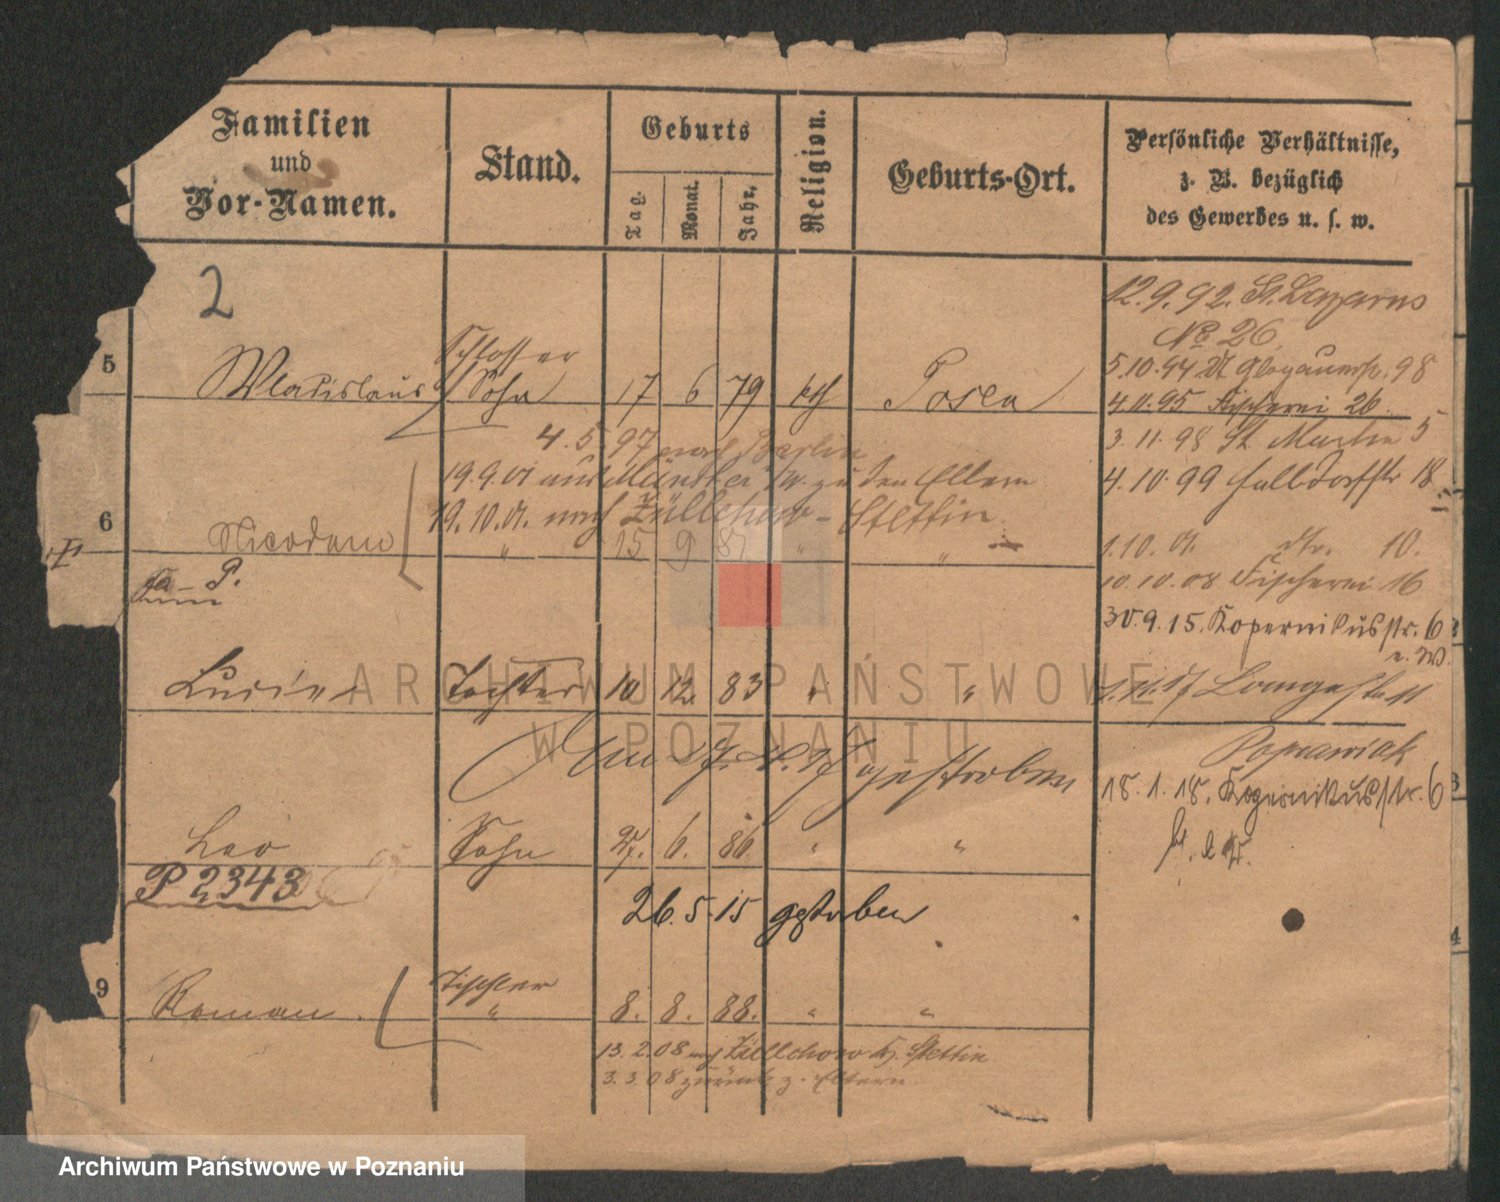 Familien
und
Vor-Namen.
Stand.
Geburts
Tag.
Monat.
Jahr.
Religion.
Geburts-Ort.
Persönliche Verhältnisse,
z. B. bezüglich
des Gewerbes u. s. w.
2
12. 9. 92. St. Lazarus
No 26.
5 Wladislaus Schlosser Sohn 17 6 79 kth Posen
5.10.94 Glogauerstr. 98
4.11.95 Fischerei 26
4. 5. 97 nach Berlin
3. 11. 98 St. Martin 5
19.9.01 aus Münster i/W. zu den Eltern
4. 10. 99 Halbdorfstr 18
19. 10. 01. nach Züllchow - Stettin
6 Nicodem " 15 9 81 " "
1.10. 01. dto. 10.
P.
10. 10. 08 Fischerei 16
30. 9. 15. Kopernikusstr. 6
b. W.
Tochter 10 12. 83 " "
Langestr. 11
gestorben
18. 1. 18. Kopernikusstr. 6
Leo Sohn 27. 6. 86 " "
P 2343
26. 5. 15 gestorben
9 Roman. Tischler " 8. 8. 88. " "
13. 2. 08 nach Züllchow b. Stettin
3. 3. 08 zurück z. Eltern
ARCHIWUM PAŃSTWOWE
W POZNANIU
3
4
Archiwum Państwowe w Poznaniu